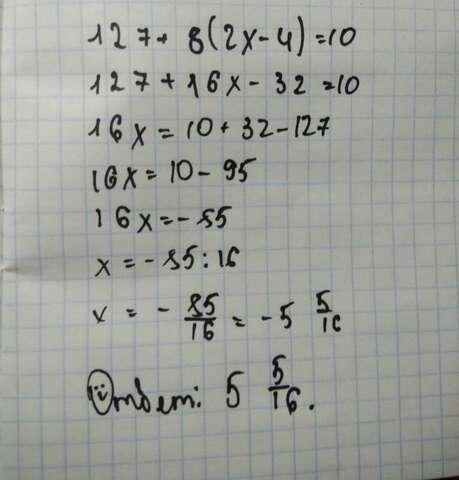 127+ 8(2x-4)=10
127+16x-32=10
16x=10+32-127
16x=10-95
16x=-85
x=-85:16
x = - 85/16 = -5 5/16
Ответ: 5 5/16.